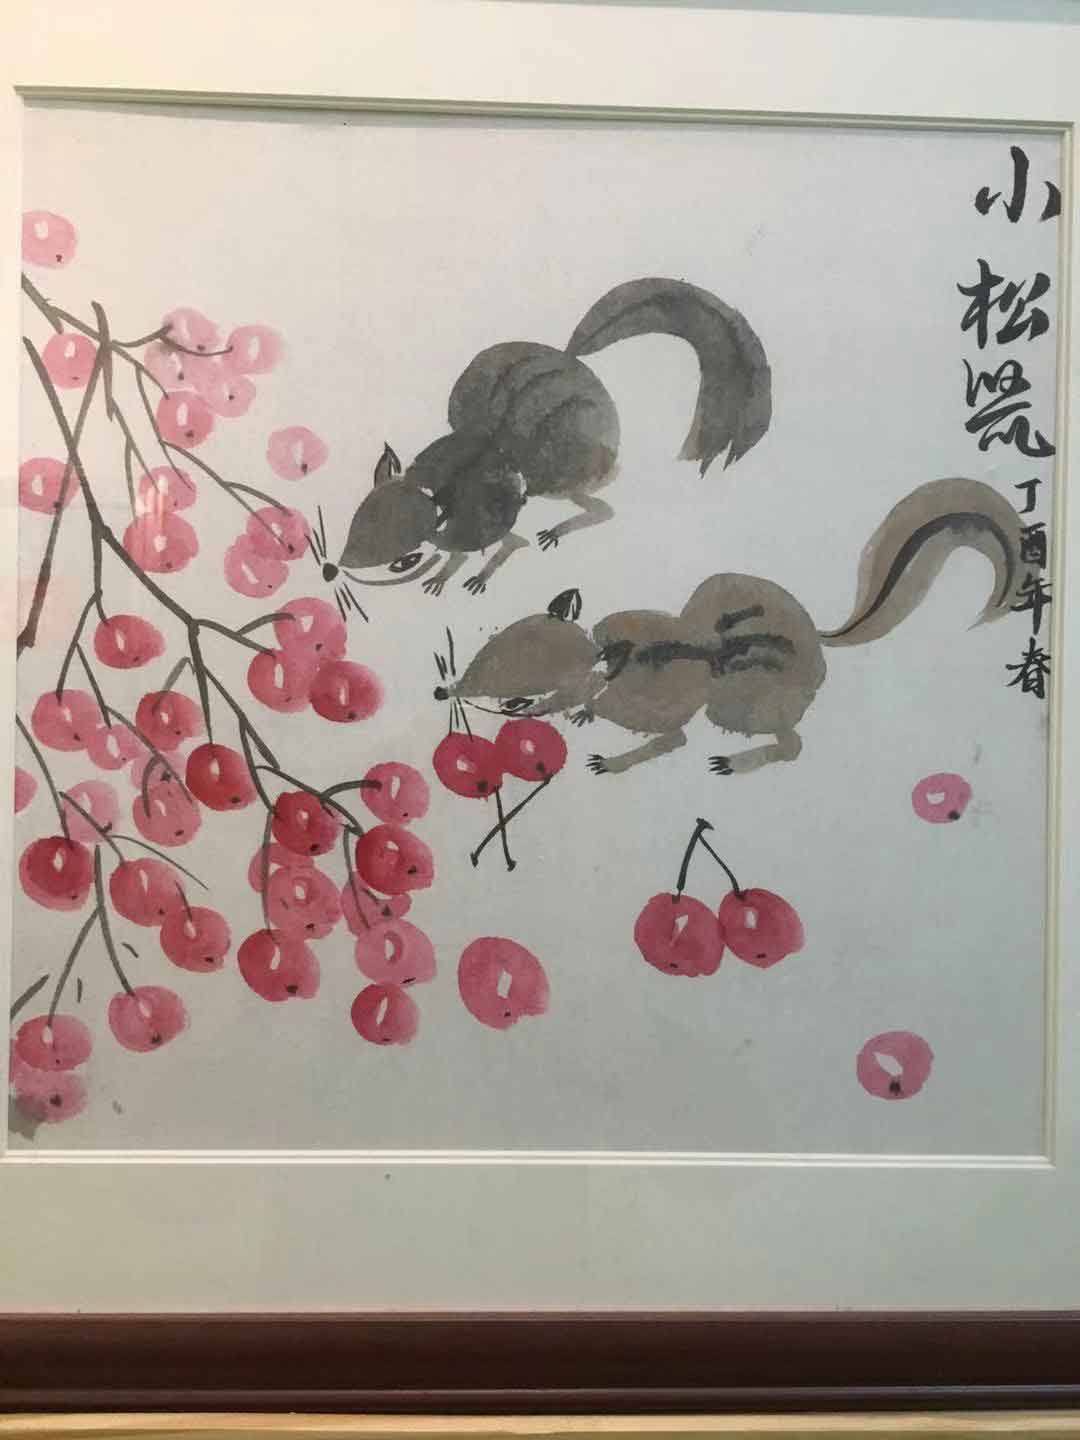 小松鼠丁酉年春